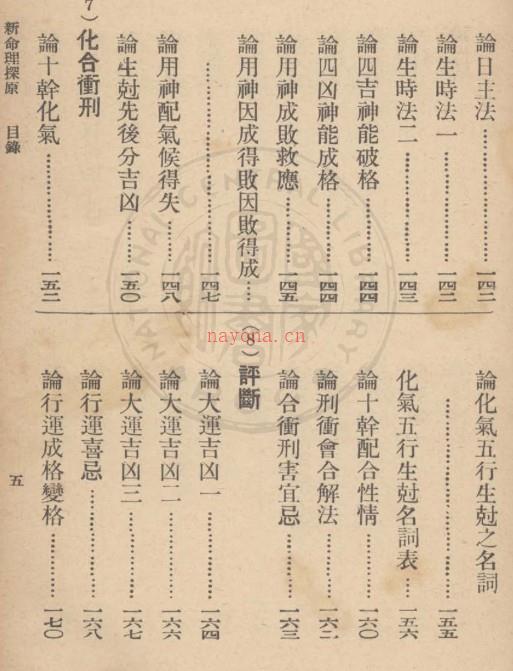 論日主法…………一四二
論生時法一………一四二
論生時法二………一四三
論四吉神能破格……一四四
論四凶神能成格……一四四
論用神成敗救應……一四五
論用神因成得敗因敗得成……
…………一四七
論用神配氣候得失……一四八
論生尅先後分吉凶……一五〇
7）化合衝刑
論十幹化氣…………一五二
論化氣五行生尅之名詞
…………一五五
化氣五行生尅名詞表……一五六
論十幹配合性情……一六〇
論刑衝會合解法……一六二
論合衝刑害宜忌……一六三
（8）評斷
論大運吉凶一………一六四
論大運吉凶二………一六六
論大運吉凶三………一六七
論行運喜忌…………一六八
論行運成格變格……一七〇
新命理探原　目錄
五
NATIONAL CENTRAL LIBRARY
nayona.cn